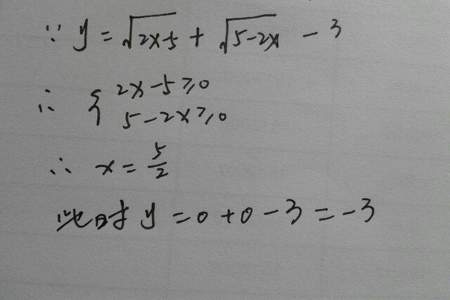 ∵ y = √(2x-5) + √(5-2x) - 3
∴ { 2x-5≥0
5-2x≥0
∴ x = 5/2
此时 y = 0+0-3 = -3